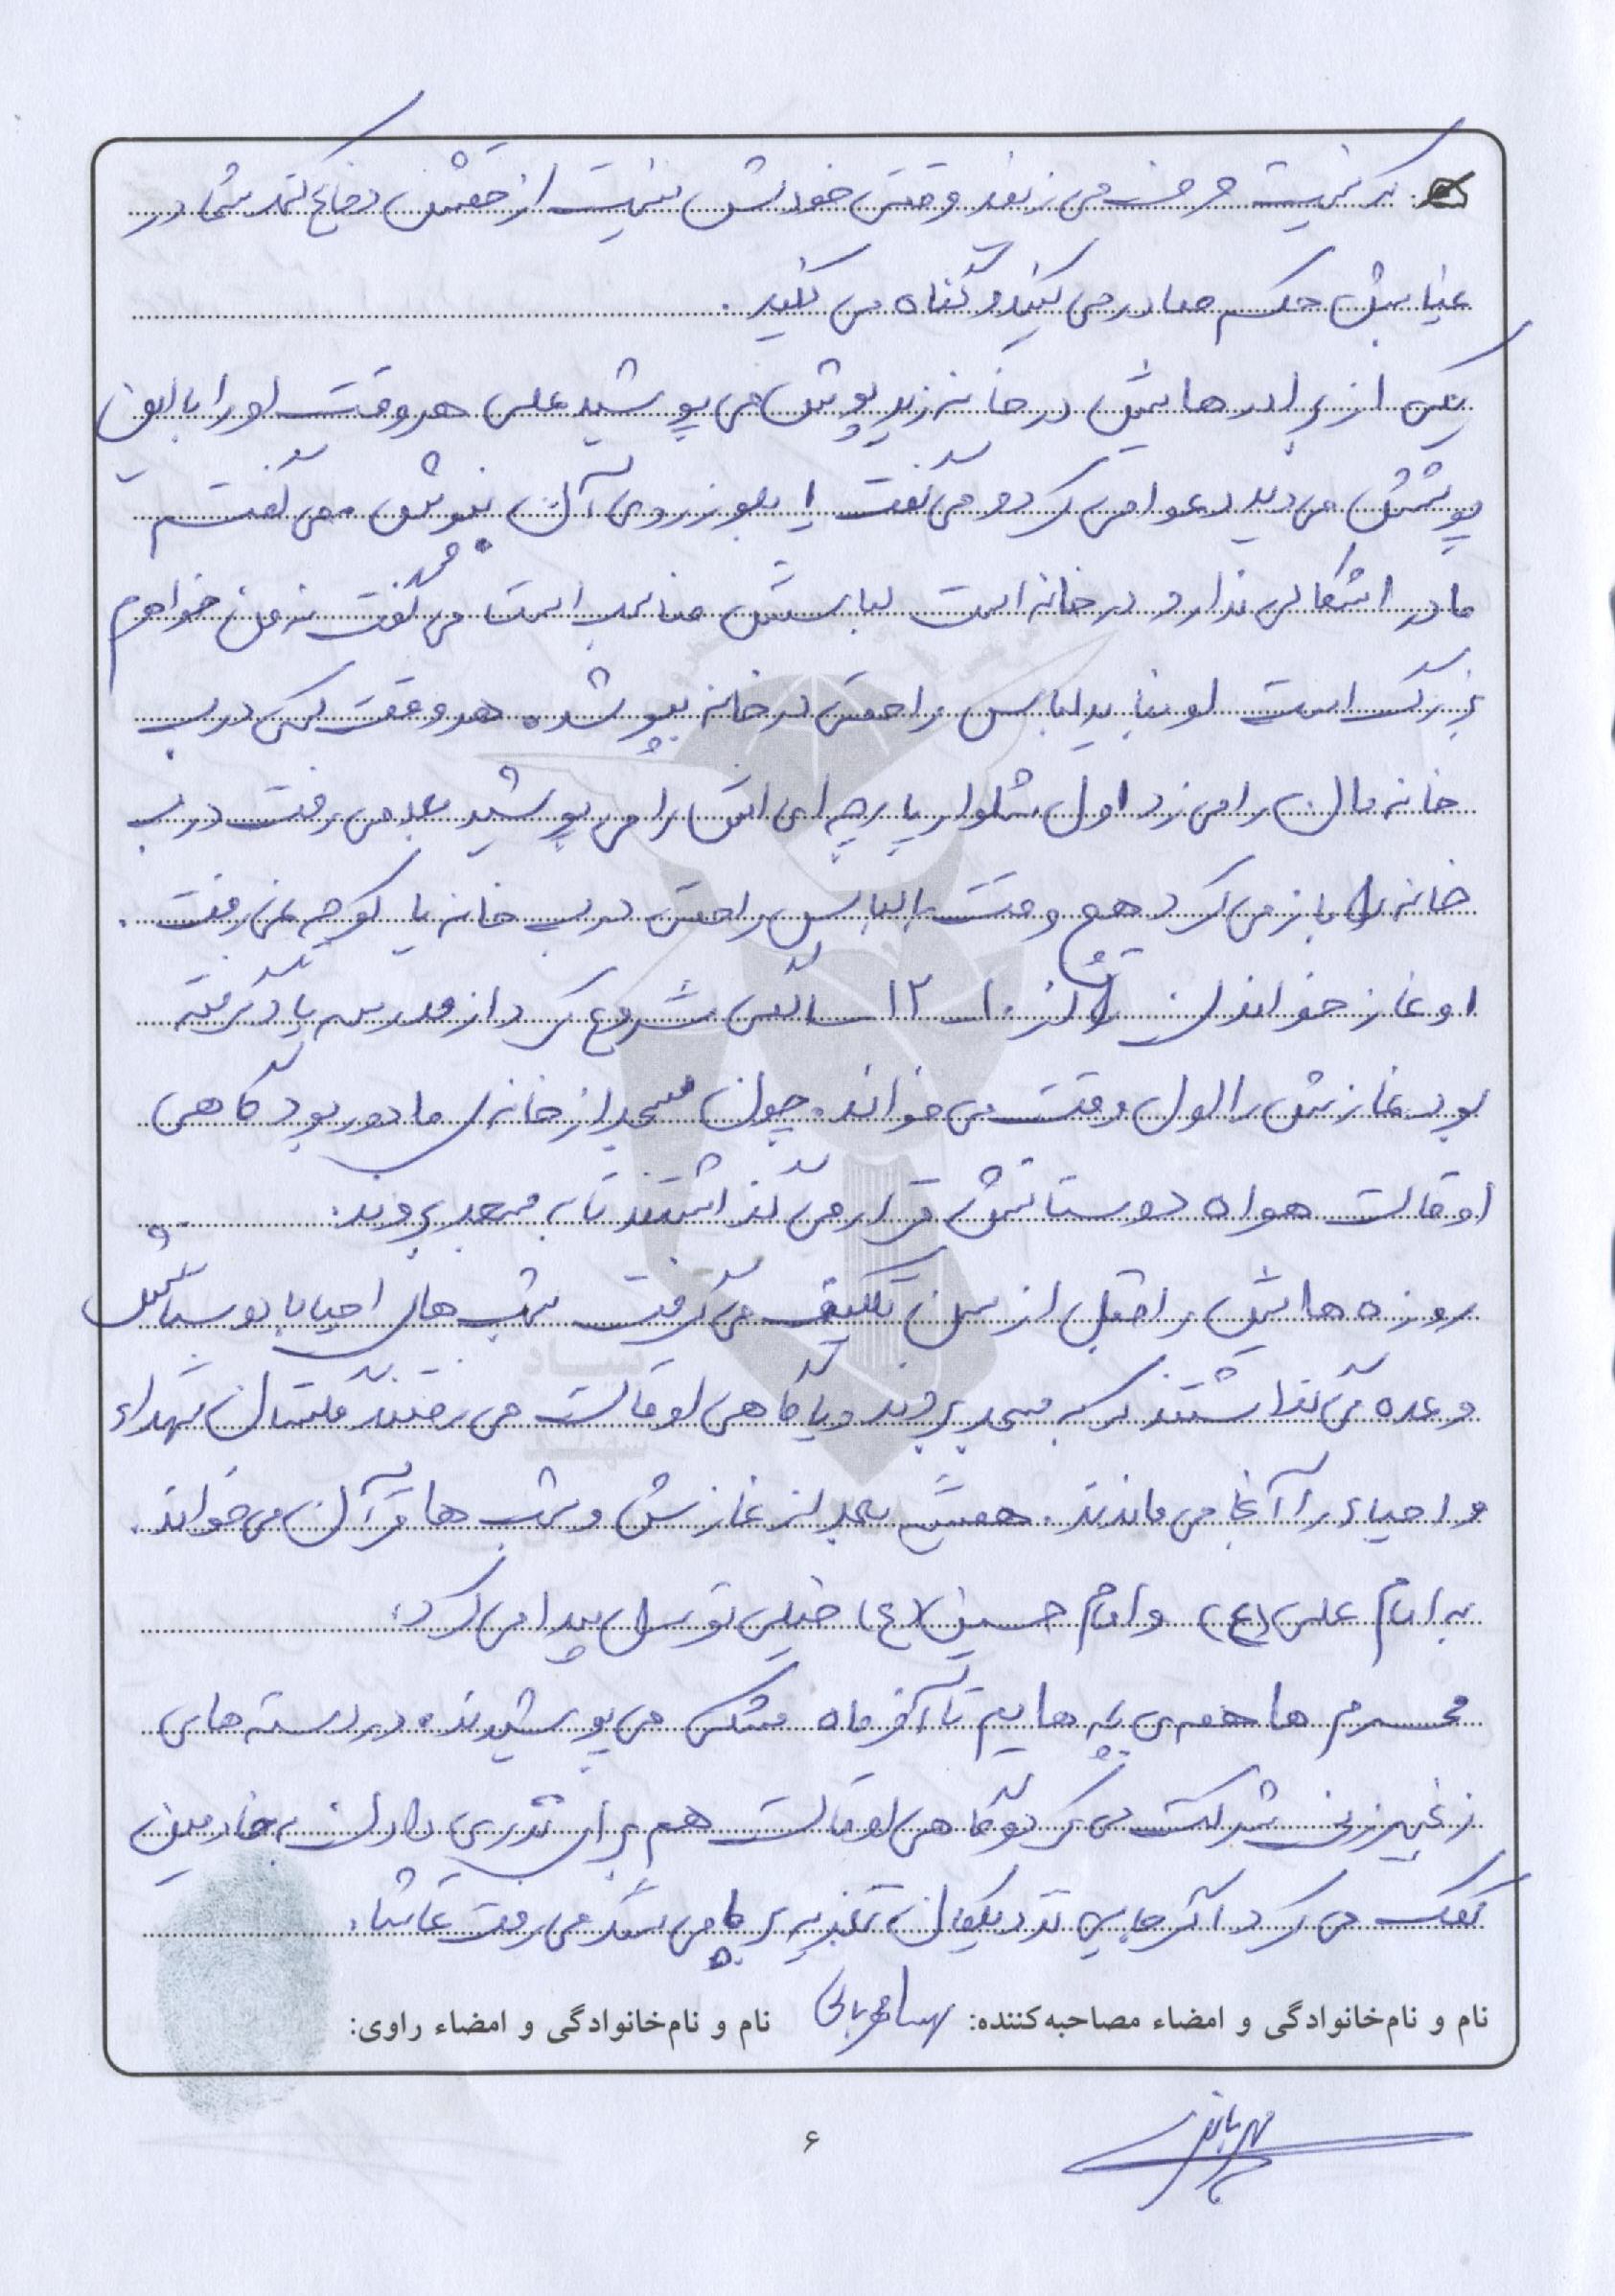 که نیست حرف می زنید وقتی خودش نیست از حقش دفاع کند شما در
غیابش حکم صادر می کنید و گناه می کنید.
یکی از برادرهایش در خانه زیرپوش می پوشید علی هر وقت او را با این
پوشش می دید دعوا می کرد و می گفت بلوز روی آن بپوش می گفتم
مادر اشکالی ندارد در خانه است لباسش مناسب است می گفت نه من خواهرم
بزرگ است او نباید لباس راحتی در خانه بپوشد. هر وقت کسی درب
خانه مان را می زد اول شلوار پارچه ای اش را می پوشید بعد می رفت درب
خانه را باز می کرد هیچ وقت با لباس راحتی درب خانه یا کوچه نمی رفت.
او نماز خواندن را از ۱۰ - ۱۲ سالگی شروع کرد از مدرسه یاد گرفته
بود نمازش را اول وقت می خواند. چون مسجد از خانه ی ما دور بود گاهی
اوقات همراه دوستانش قرار می گذاشتند تا به مسجد بروند.
روزه هایش را قبل از سن تکلیف می گرفت شب های احیا با دوستانش
وعده می گذاشتند که به مسجد بروند و یا گاهی اوقات می رفتند گلستان شهداء
و احیاء را آنجا می ماندند. همیشه بعد از نمازش و شب ها قرآن می خواند.
به امام علی (ع) و امام حسین (ع) خیلی توسل پیدا می کرد.
محرم ها همه ی بچه هایم تا آخر ماه مشکی می پوشیدند. در دسته های
زنجیرزنی شرکت می کرد و گاهی اوقات هم برای نذری دادن به خادمین
کمک می کرد اگر جایی نزدیکمان تعزیه برپا می شد می رفت تماشا.
نام و نام‌خانوادگی و امضاء مصاحبه‌کننده: نام و نام‌خانوادگی و امضاء راوی:
۶